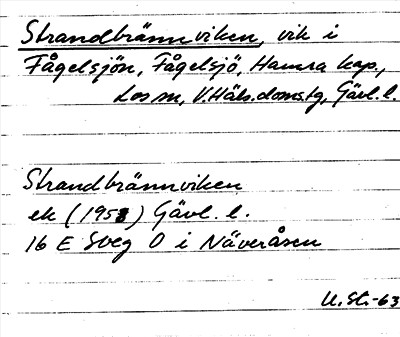 Strandbrännviken, vik i
Fågelsjön, Fågelsjö, Hamra kap.,
Los sn, V.Häls.doms.tg, Gävl.l.
Strandbrännviken
ek (1958) Gävl. l.
16 E Sveg O i Näveråsen
U.St.-63